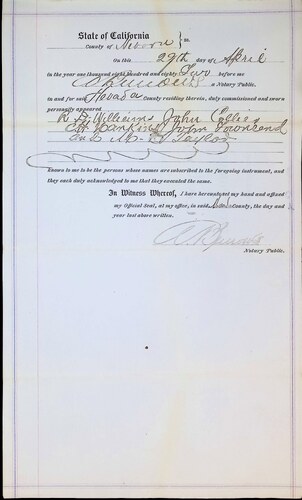 State of California
County of Nevada } ss.
On this 29th day of April
in the year one thousand eight hundred and eighty Two before me
a Notary Public,
in and for said Nevada County residing therein, duly commissioned and sworn
personally appeared
R. D. Williams John Collier
John Townsend
Taylor
Known to me to be the persons whose names are subscribed to the foregoing instrument, and
they each duly acknowledged to me that they executed the same.
In Witness Whereof, I have hereunto set my hand and affixed
my Official Seal, at my office, in said County, the day and
year last above written.
Notary Public.